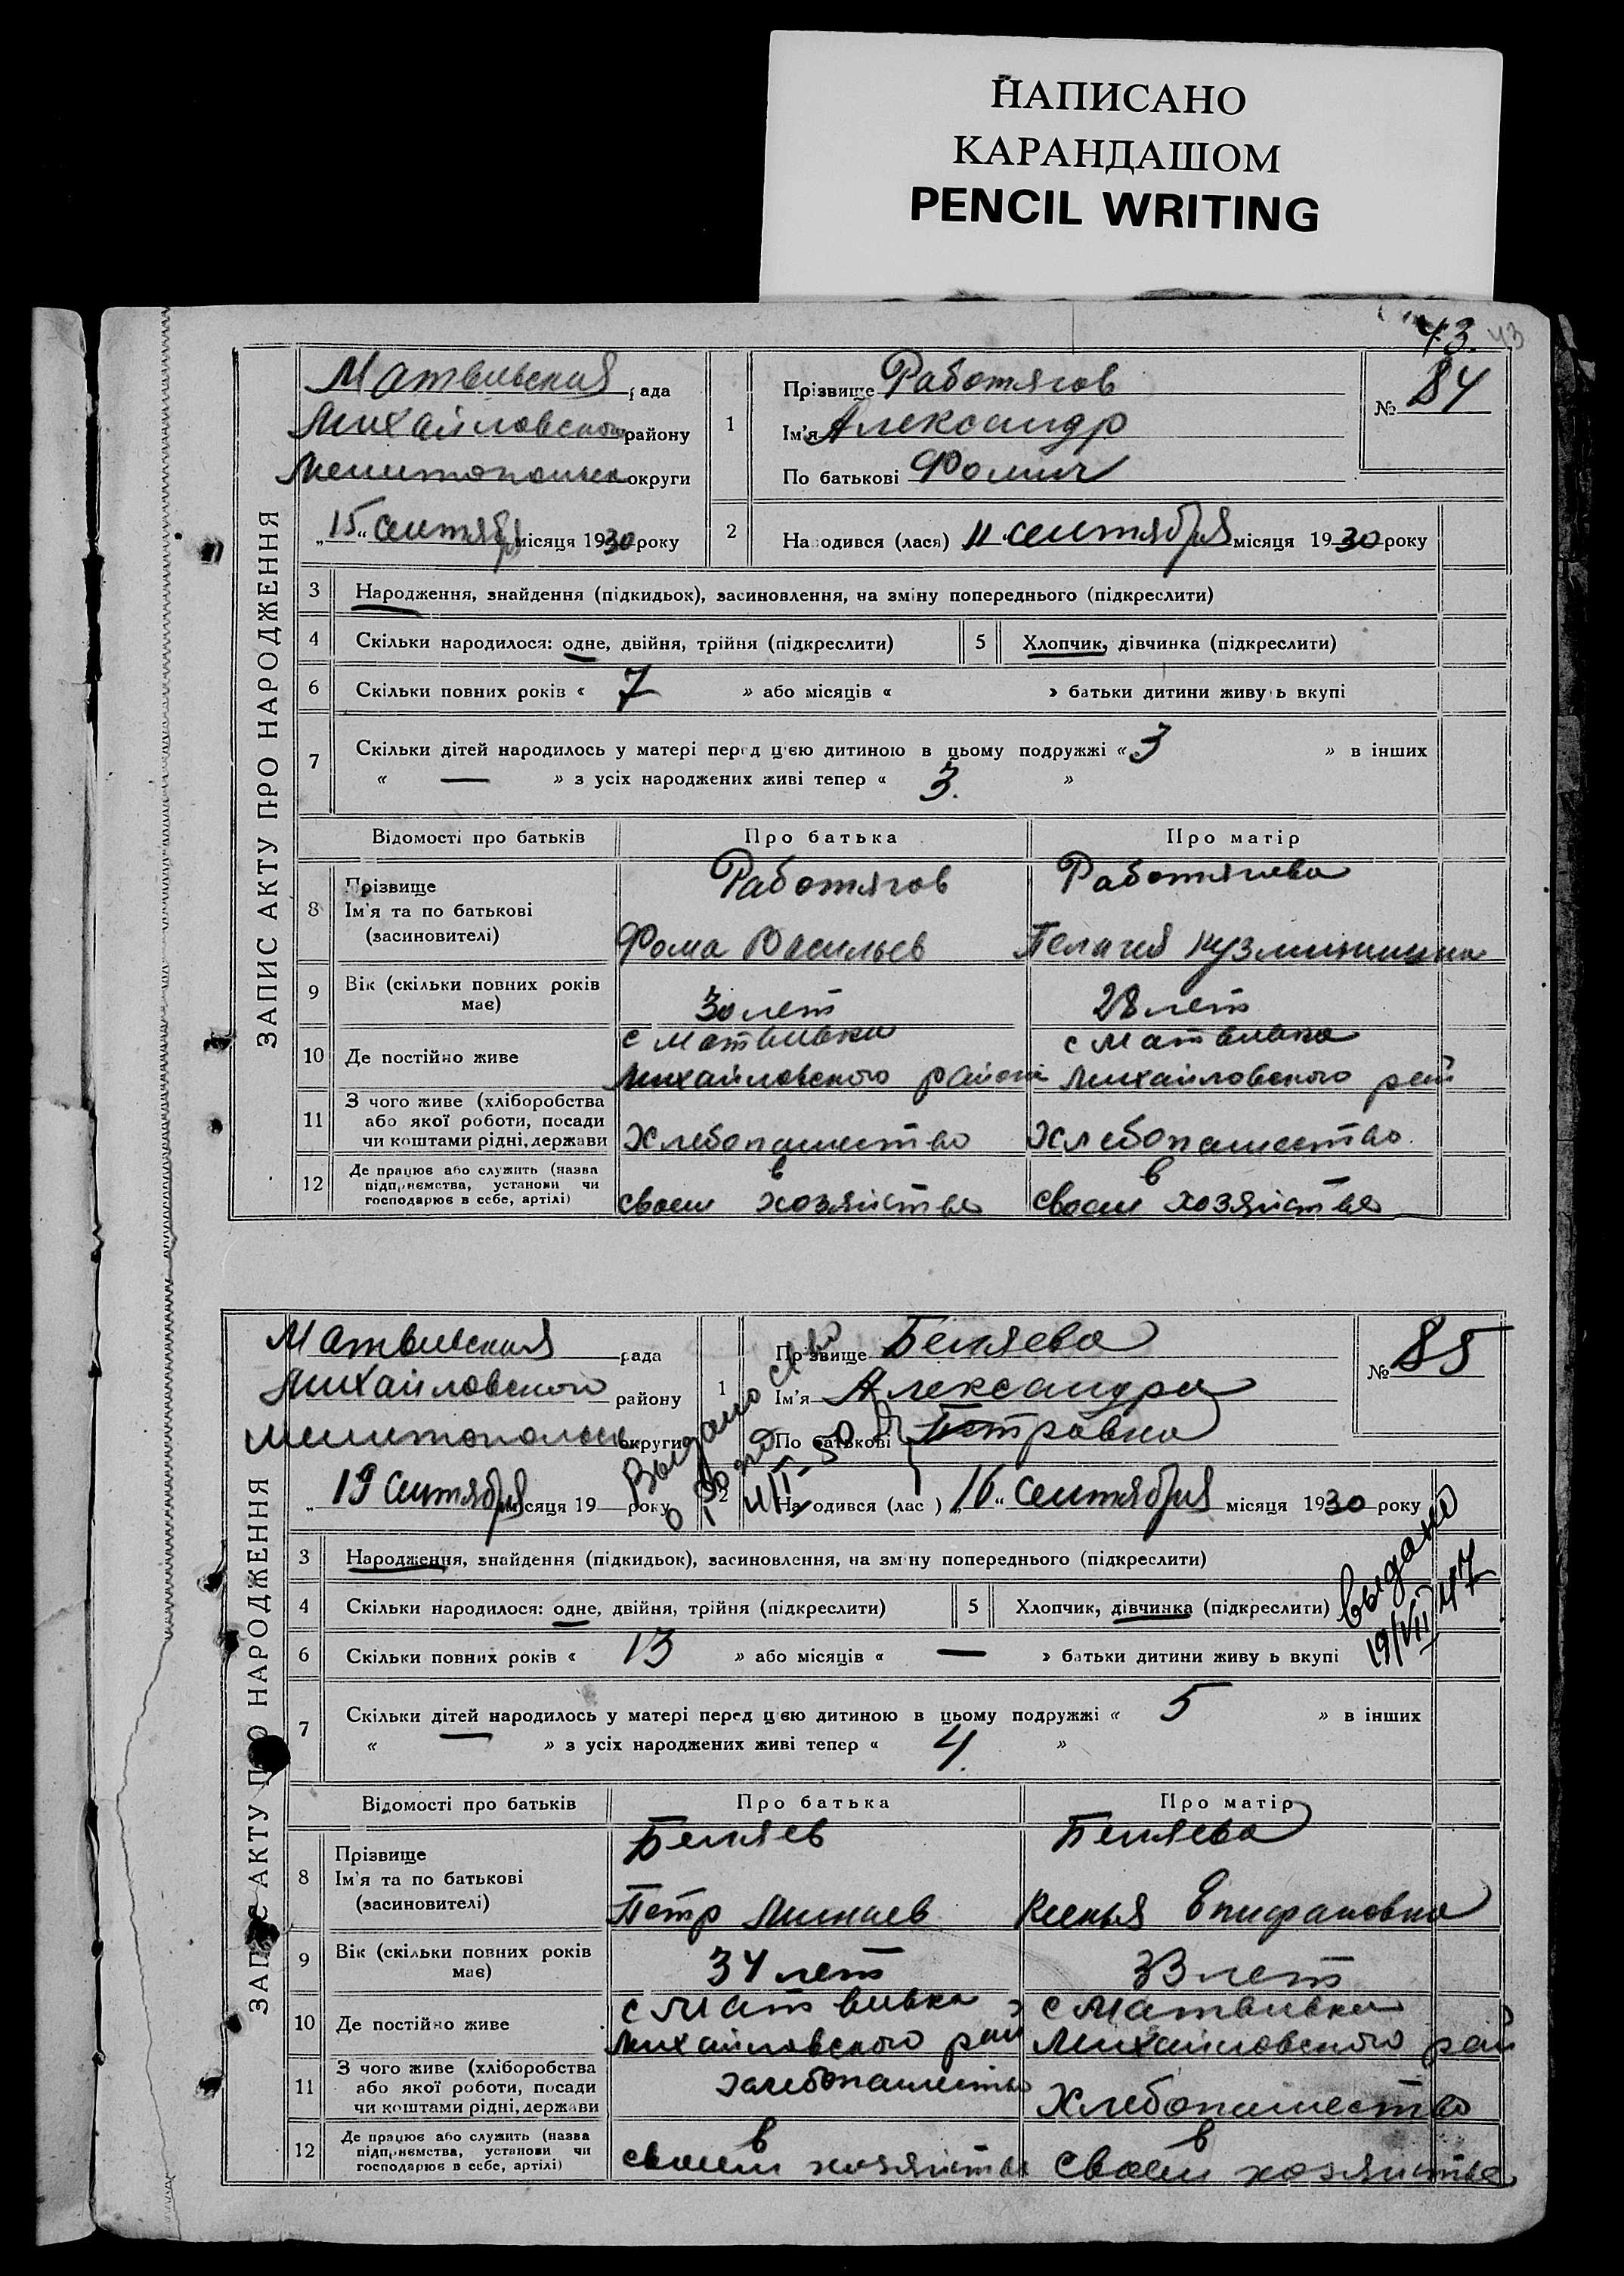 НАПИСАНО
КАРАНДАШОМ
PENCIL WRITING
43. 43
ЗАПИС АКТУ ПРО НАРОДЖЕННЯ
Матвивская рада
Михайловского району
Мелитопольск округи
„15“ сентября місяця 1930 року
1
Прізвище Работягов
Ім'я Александр
По батькові Фомич
№ 84
2 Народився (лася) 11 сентября місяця 1930 року
3 Народження, знайдення (підкидьок), засиновлення, на зміну попереднього (підкреслити)
4 Скільки народилося: одне, двійня, трійня (підкреслити) 5 Хлопчик, дівчинка (підкреслити)
6 Скільки повних років « 7 » або місяців « » батьки дитини живуть вкупі
7 Скільки дітей народилось у матері перед цією дитиною в цьому подружжі « 3 » в інших
« — » з усіх народжених живі тепер « 3. »
Відомості про батьків Про батька Про матір
8 Прізвище
Ім'я та по батькові
(засиновителі)
Работягов
Фома Васильев
Работягева
Пелагия
9 Вік (скільки повних років має)
30 лет
28 лет
10 Де постійно живе
с Матвивка
Михайловского района
с Матвивка
Михайловского рай
11 З чого живе (хліборобства
або якої роботи, посади
чи коштами рідні, держави
Хлебопашество
Хлебопашество
12 Де працює або служить (назва
підприємства, установи чи
господарює в себе, артілі)
в
своем хозяйстве
в
своем хозяйстве
ЗАПИС АКТУ ПРО НАРОДЖЕННЯ
Матвивская рада
Михайловского району
Мелитопольск округи
„19 Сентября місяця 19 року
1
Прізвище Беляева
Ім'я Александра
По батькові Петровна
№ 85
Выдано
2 Народився (лас ) „16“ сентября місяця 1930 року
3 Народження, знайдення (підкидьок), засиновлення, на зміну попереднього (підкреслити)
4 Скільки народилося: одне, двійня, трійня (підкреслити) 5 Хлопчик, дівчинка (підкреслити)
выдано
19/VII 47
6 Скільки повних років « 13 » або місяців « — » батьки дитини живу ь вкупі
7 Скільки дітей народилось у матері перед цією дитиною в цьому подружжі « 5 » в інших
« — » з усіх народжених живі тепер « 4. »
Відомості про батьків Про батька Про матір
8 Прізвище
Ім'я та по батькові
(засиновителі)
Беляев
Петр Минаев
Беляева
Ксенья Епифановна
9 Вік (скільки повних років має)
34 лет
33 лет
10 Де постійно живе
с Матвивка
Михайловского рай
с Матвивка
Михайловского рай
11 З чого живе (хліборобства
або якої роботи, посади
чи коштами рідні, держави
Хлебопашество
Хлебопашество
12 Де працює або служить (назва
підприємства, установи чи
господарює в себе, артілі)
в
своем хозяйстве
в
своем хозяйстве